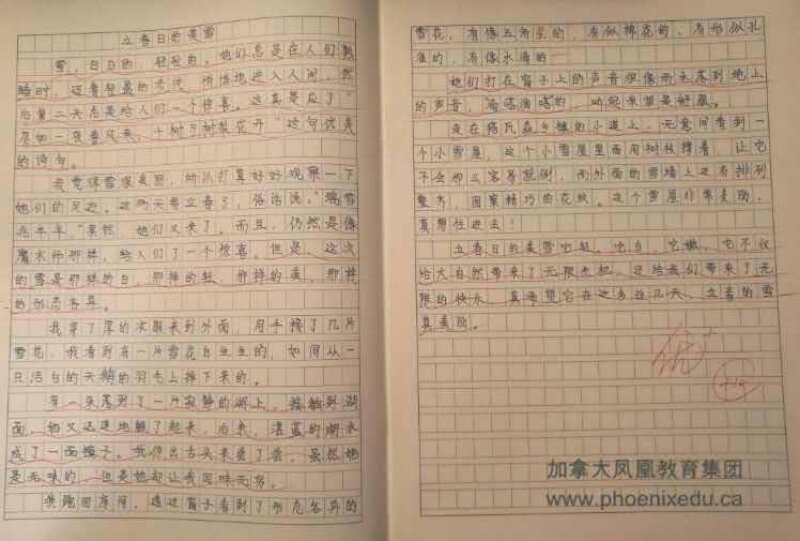 立春日的美雪
雪，白白的，轻轻的。她们总是在人们熟
睡时，迈着轻盈的步伐，悄悄地进入人间。然
后第二天总是给人们一个惊喜。这真是应了“
忽如一夜春风来，千树万树梨花开”这句优美
的诗句。
我觉得雪很美丽，所以打算好好观察一下
她们的足迹。这两天要立春了，俗话说，“瑞雪
兆丰年”果然，她们又来了。而且，仍然是像
魔术师那样，给人们了一个惊喜。但是，这次
的雪是那样的白，那样的轻，那样的美，那样
的形态各异。
我穿了厚的衣服来到外面，用手接了几片
雪花，我看到有一片雪花白生生的，如同从一
只洁白的天鹅的羽毛上掉下来的。
有一朵落到了一片寂静的湖上，接触到湖
面，她又迅速地躲了起来，后来，湛蓝的湖水
成了一面镜子。我伸出舌头来尝了尝，虽然她
是无味的，但是她却让我回味无穷。
我跑回房间，透过窗子看到了形态各异的
雪花，有像五角星的，有似棉花的，有形似孔
雀的，有像水滴的
她们打在窗子上的声音很像雨水落到地上
的声音，滴嗒滴嗒的，听起来很是舒服。
走在格瓦森乡镇的小道上，无意间看到一
个小雪屋，这个小雪屋里面用树枝撑着，让它
不会那么容易就倒，而外面的雪墙上还有排列
整齐，图案精巧的花纹。这个雪屋非常美丽，
真想住进去！
立春日的美雪它轻，它白，它嫩，它不仅
给大自然带来了无限生机，还给我们带来了无
限的快乐，真希望它在这多住几天，立春的雪
真美丽。
优+
加拿大凤凰教育集团
www.phoenixedu.ca